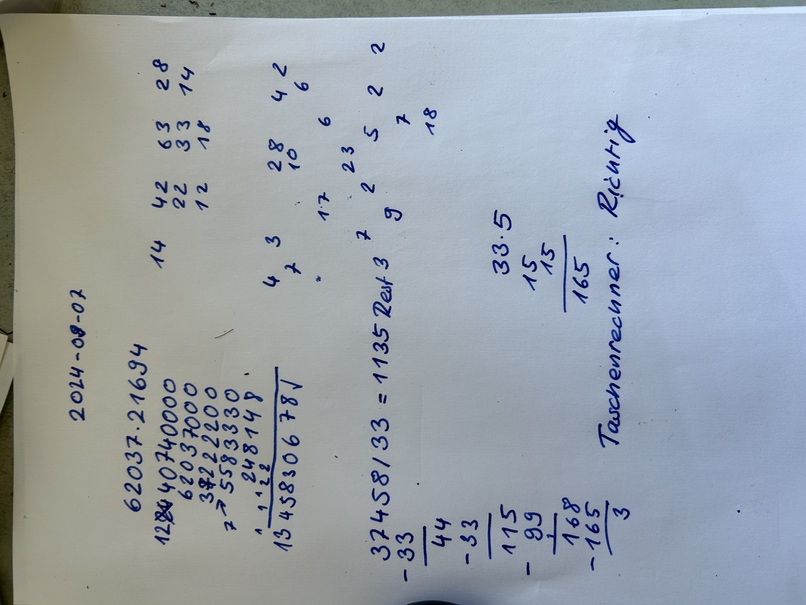 2024-08-07
62037·21694
1240740000
62037000
37222200
7 → 5583330
248148
1 1 1 2 2
1345830678 √
14 42 63 28
22 33 14
12 18
4 3 28 4 2
7 10 6
17 6
23
7 2 5 2 2
9 7
18
37458/33 = 1135 Rest 3
-33
44
-33
115
- 99
168
-165
3
33·5
15
15
165
Taschenrechner: Richtig